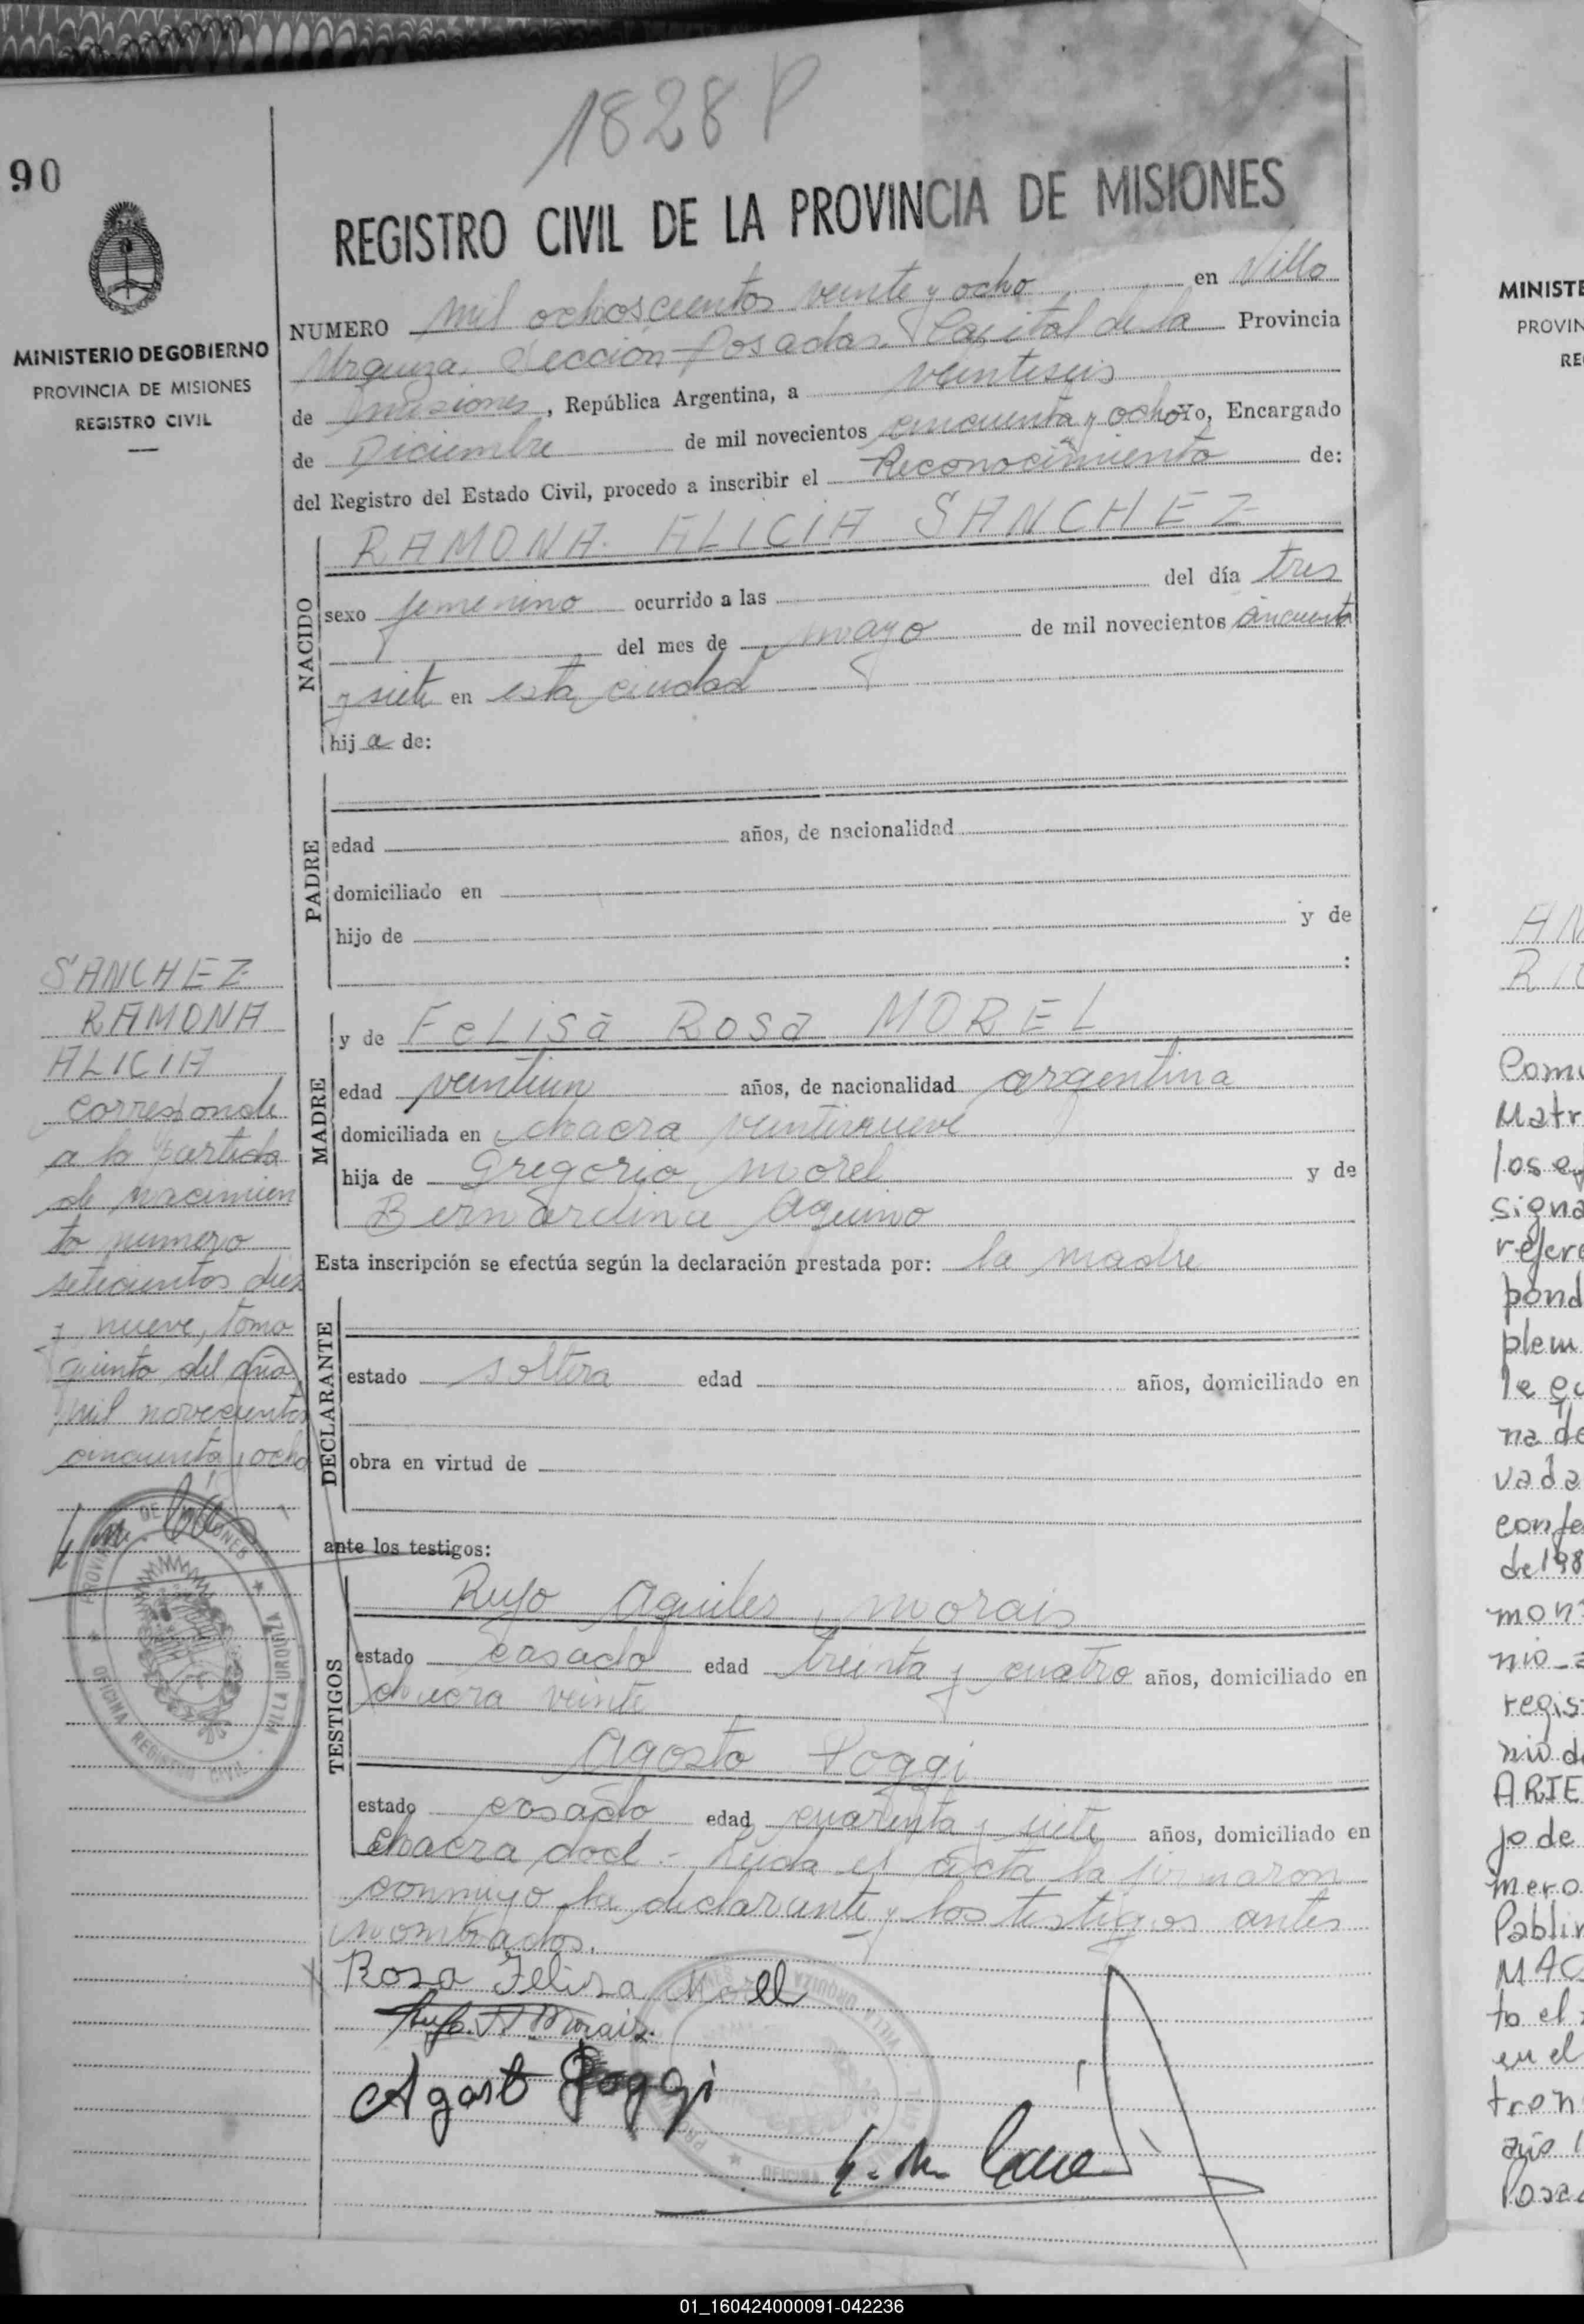 1828 P
90
REGISTRO CIVIL DE LA PROVINCIA DE MISIONES
MINISTERIO DE GOBIERNO
PROVINCIA DE MISIONES
REGISTRO CIVIL
NUMERO mil ochoscientos veinte y ocho en Villa
Urquiza, Sección Posadas, Capital de la Provincia
de Misiones, República Argentina, a veintiseis
de Diciembre de mil novecientos cincuenta y ocho Yo, Encargado
del Registro del Estado Civil, procedo a inscribir el Reconocimiento de:
NACIDO
RAMONA ALICIA SANCHEZ
sexo femenino ocurrido a las del día tres
del mes de mayo de mil novecientos cincuenta
y siete en esta ciudad
hija de:
PADRE
edad años, de nacionalidad
domiciliado en
hijo de y de
:
MADRE
y de FeLisa Rosa MOREL
edad veintiun años, de nacionalidad argentina
domiciliada en chacra veintinueve
hija de Gregorio Morel y de
Bernardina Aquino
Esta inscripción se efectúa según la declaración prestada por: la madre
DECLARANTE
estado soltera edad años, domiciliado en
obra en virtud de
ante los testigos:
TESTIGOS
Rufo Aquiles Morais
estado casado edad treinta y cuatro años, domiciliado en
chacra veinte
Agosto Poggi
estado casado edad cuarenta y siete años, domiciliado en
chacra doce.- Leida el acta la firmaron
conmigo la declarante y los testigos antes
nombrados.
Rosa Felisa Morel
Rufo A Morais
Agosto Poggi
SANCHEZ
RAMONA
ALICIA
corresponde
a la partida
de nacimien
to numero
setecientos diez
y nueve, tomo
quinto del año
mil novecientos
cincuenta y ocho
PROVINCIA DE MISIONES
OFICINA REGISTRO CIVIL
VILLA URQUIZA
VILLA URQUIZA
OFICINA
MINISTE
PROVIN
RE
AN
Comu
Matr
los
signa
refere
pond
plem
na de
vada
confe
de 198
regis
nio d
ARTE
jo de
mero
Pablin
MAC
to el
en el
tron
01_160424000091-042236